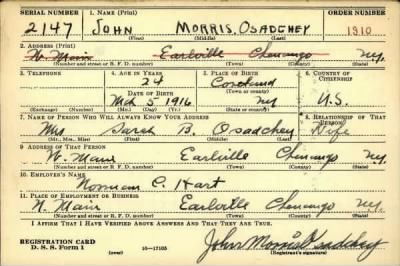 SERIAL NUMBER 1. NAME (Print) ORDER NUMBER
2147 JOHN MORRIS OSADCHEY 1310
(First) (Middle) (Last)
2. ADDRESS (Print)
W. Main Earlville Chenango N.Y.
(Number and street or R. F. D. number) (Town) (County) (State)
3. TELEPHONE 4. AGE IN YEARS 5. PLACE OF BIRTH 6. COUNTRY OF CITIZENSHIP
24 Cortland
DATE OF BIRTH (Town or county)
Mch 5 1916 NY U.S.
(Exchange) (Number) (Mo.) (Day) (Yr.) (State or country)
7. NAME OF PERSON WHO WILL ALWAYS KNOW YOUR ADDRESS 8. RELATIONSHIP OF THAT PERSON
Mrs Sarah B. Osadchey Wife
(Mr., Mrs., Miss) (First) (Middle) (Last)
9. ADDRESS OF THAT PERSON
W. Main Earlville Chenango N.Y.
(Number and street or R. F. D. number) (Town) (County) (State)
10. EMPLOYER'S NAME
Norman C. Hart
11. PLACE OF EMPLOYMENT OR BUSINESS
N. Main Earlville Chenango N.Y.
(Number and street or R. F. D. number) (Town) (County) (State)
I AFFIRM THAT I HAVE VERIFIED ABOVE ANSWERS AND THAT THEY ARE TRUE.
REGISTRATION CARD
D. S. S. Form 1 (over) 16-17105 John Morris Osadchey
(Registrant's signature)